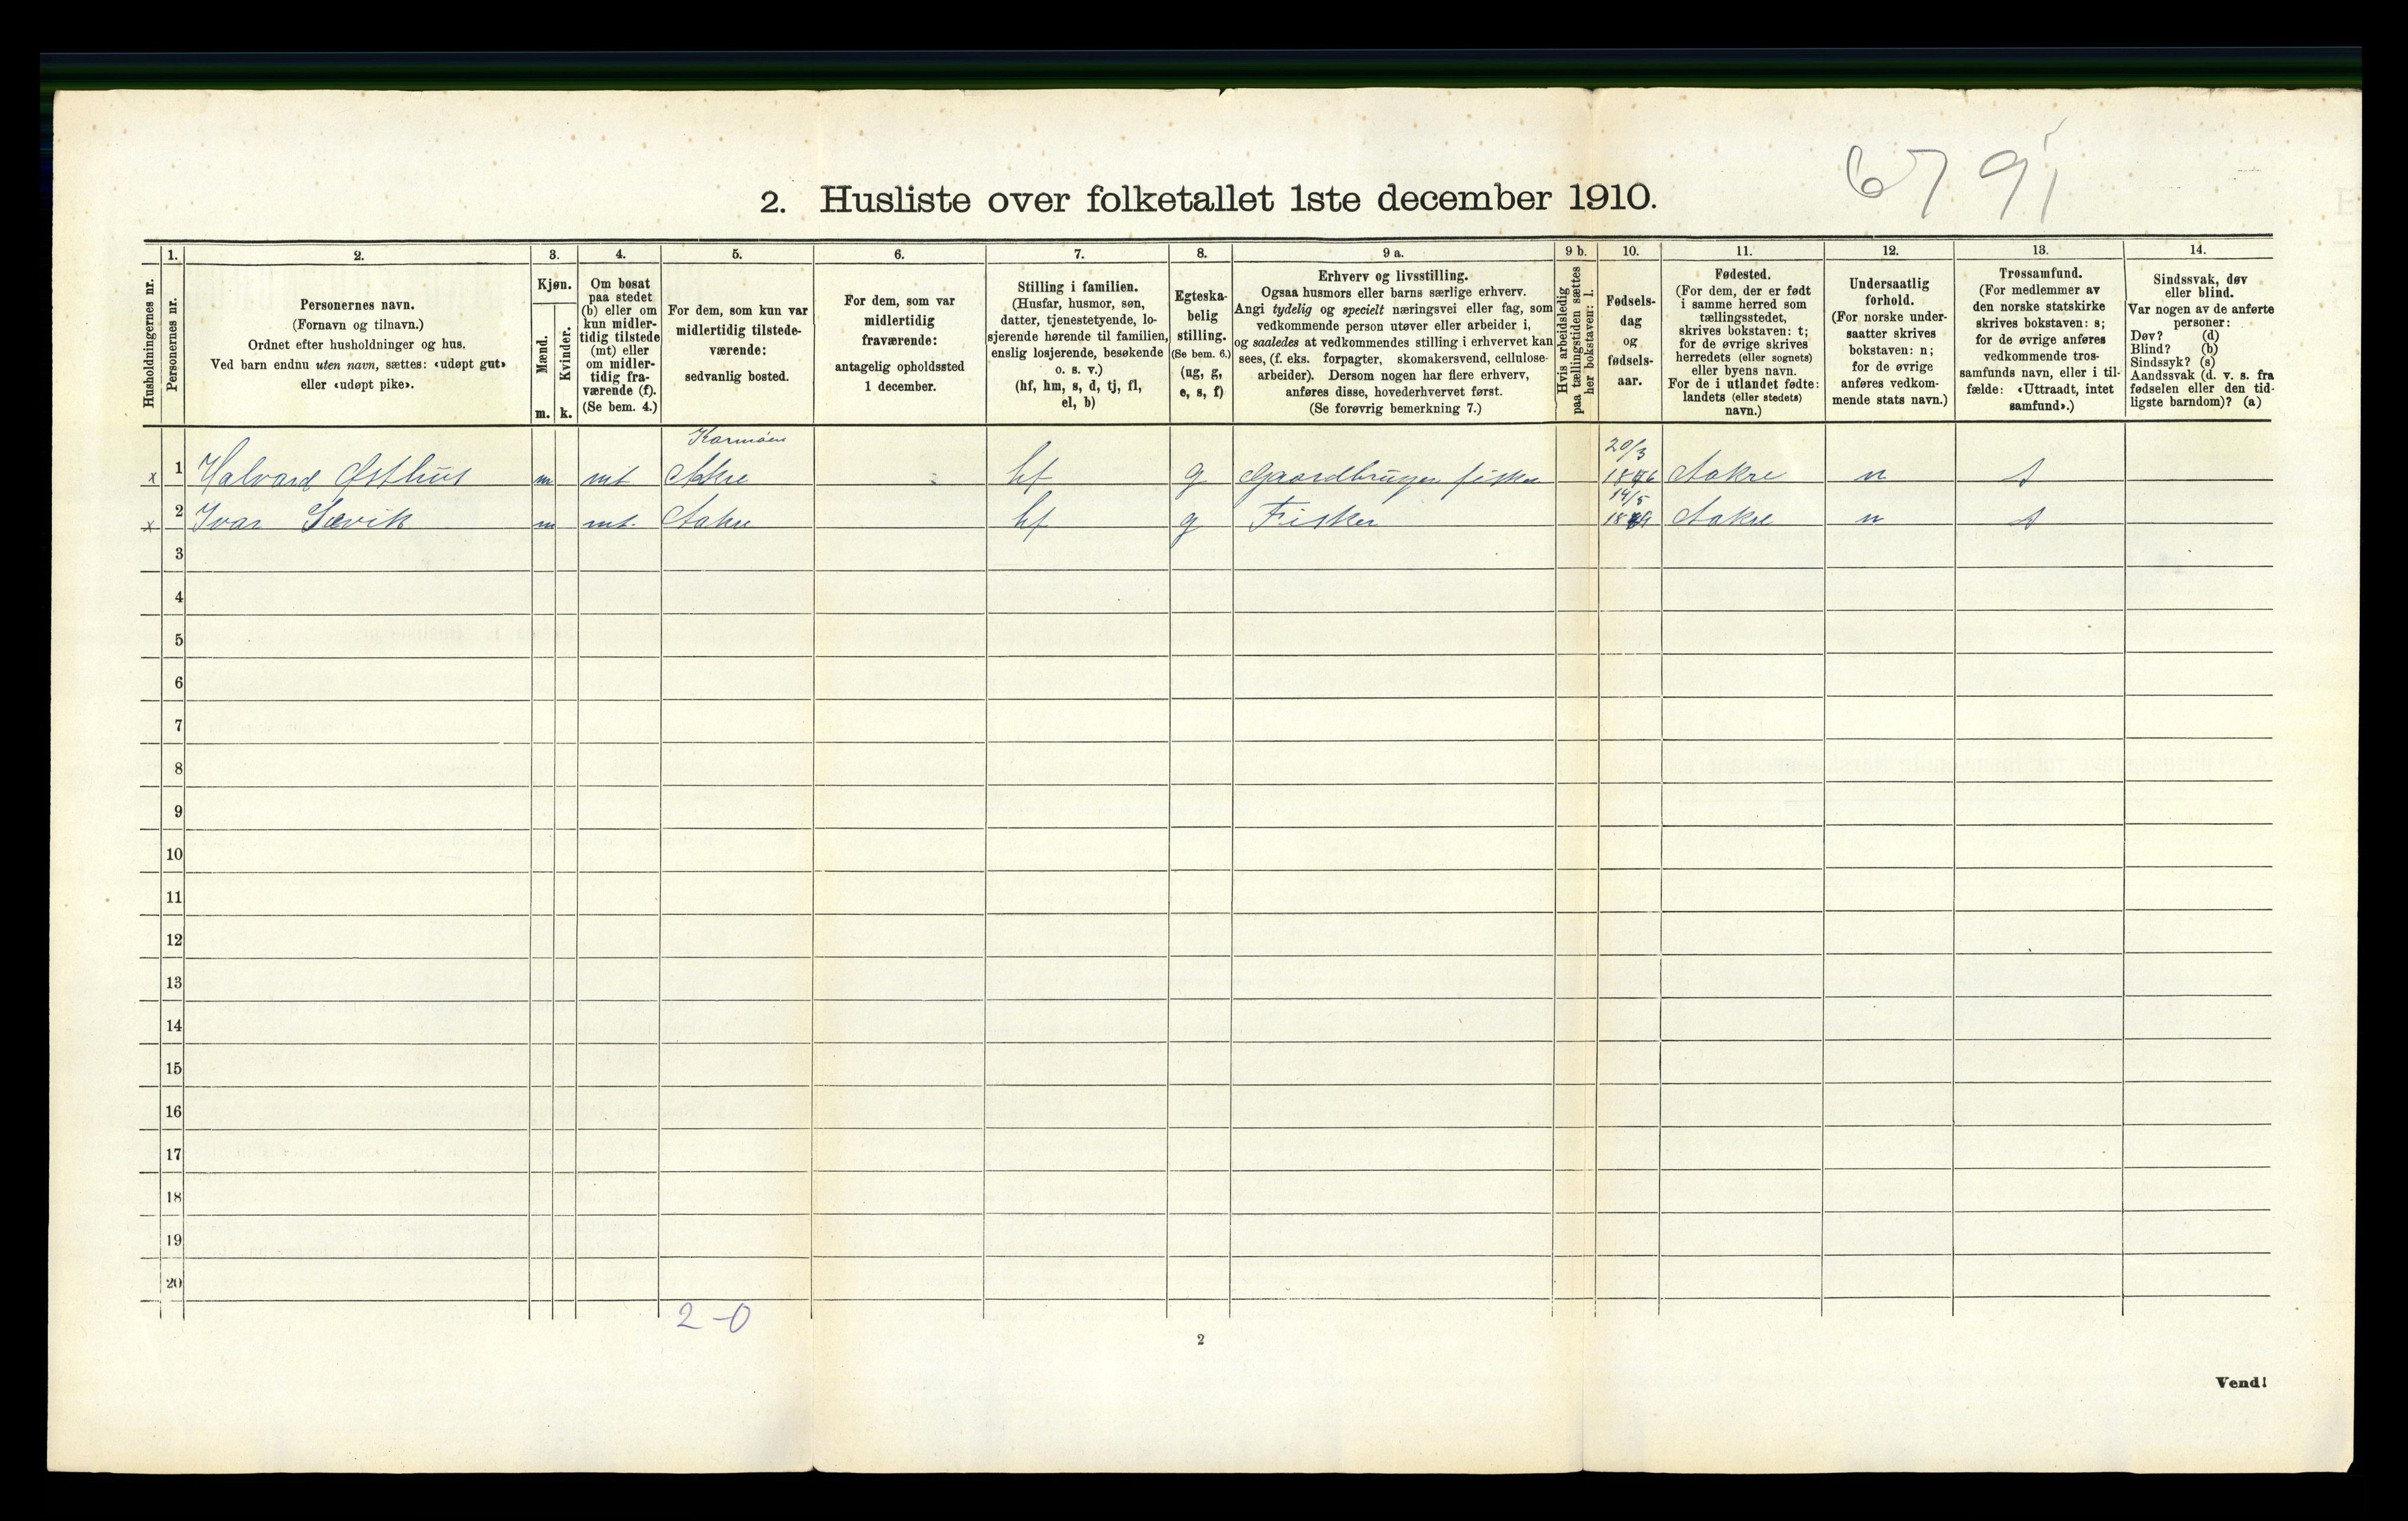 2. Husliste over folketallet 1ste december 1910.
6791
Husholdningernes nr.
1. 2. 3. 4. 5. 6. 7. 8. 9 a. 9 b. 10. 11. 12. 13. 14.
Personernes nr.
Personernes navn.
(Fornavn og tilnavn.)
Ordnet efter husholdninger og hus.
Ved barn endnu uten navn, sættes: «udøpt gut»
eller «udøpt pike».
Kjøn.
Mænd.
m.
Kvinder.
k.
Om bosat
paa stedet
(b) eller om
kun midler-
tidig tilstede
(mt) eller
om midler-
tidig fra-
værende (f).
(Se bem. 4.)
For dem, som kun var
midlertidig tilstede-
værende:
sedvanlig bosted.
For dem, som var
midlertidig
fraværende:
antagelig opholdssted
1 december.
Stilling i familien.
(Husfar, husmor, søn,
datter, tjenestetyende, lo-
sjerende hørende til familien,
enslig losjerende, besøkende
o. s. v.)
(hf, hm, s, d, tj, fl,
el, b)
Egteska-
belig
stilling.
(Se bem. 6.)
(ug, g,
e, s, f)
Erhverv og livsstilling.
Ogsaa husmors eller barns særlige erhverv.
Angi tydelig og specielt næringsvei eller fag, som
vedkommende person utøver eller arbeider i,
og saaledes at vedkommendes stilling i erhvervet kan
sees, (f. eks. forpagter, skomakersvend, cellulose-
arbeider). Dersom nogen har flere erhverv,
anføres disse, hovederhvervet først.
(Se forøvrig bemerkning 7.)
Hvis arbeidsledig
paa tællingstiden sættes
her bokstaven: l.
Fødsels-
dag
og
fødsels-
aar.
Fødested.
(For dem, der er født
i samme herred som
tællingsstedet,
skrives bokstaven: t;
for de øvrige skrives
herredets (eller sognets)
eller byens navn.
For de i utlandet fødte:
landets (eller stedets)
navn.)
Undersaatlig
forhold.
(For norske under-
saatter skrives
bokstaven: n;
for de øvrige
anføres vedkom-
mende stats navn.)
Trossamfund.
(For medlemmer av
den norske statskirke
skrives bokstaven: s;
for de øvrige anføres
vedkommende tros-
samfunds navn, eller i til-
fælde: «Uttraadt, intet
samfund».)
Sindssvak, døv
eller blind.
Var nogen av de anførte
personer:
Døv? (d)
Blind? (b)
Sindssyk? (s)
Aandssvak (d. v. s. fra
fødselen eller den tid-
ligste barndom)? (a)
Karmöen 20/3
x 1 Halvard Østhus m mt Aakre hf g Gaardbruger fisker Aakre n s
14/5
x 2 Ivar Sævik m mt. Aakre hf g Fisker Aakre n s
3
4
5
6
7
8
9
10
11
12
13
14
15
16
17
18
19
20
2-0
2
Vend!